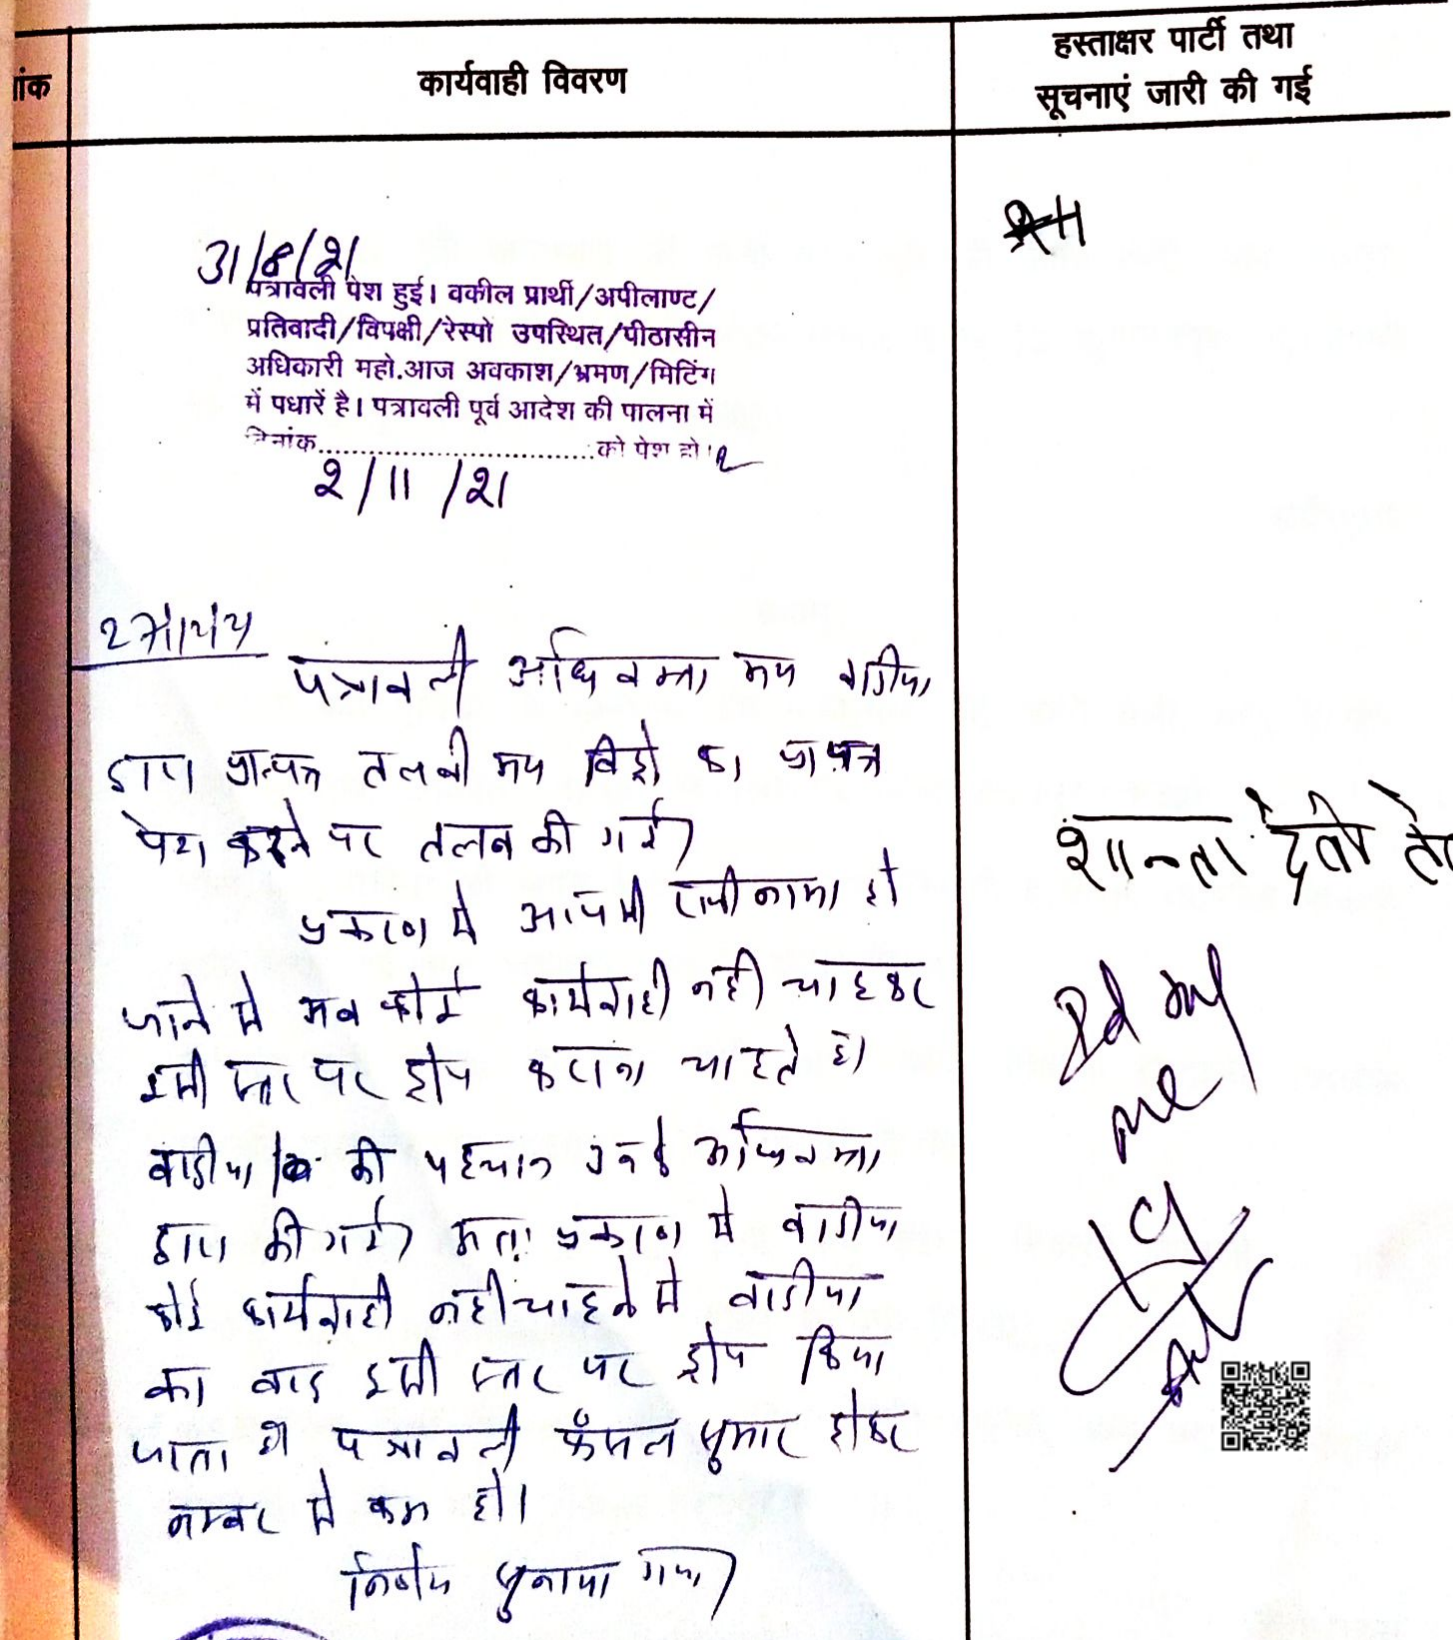 हस्ताक्षर पार्टी तथा
ांक कार्यवाही विवरण सूचनाएं जारी की गई
31/8/21
पत्रावली पेश हुई। वकील प्रार्थी/अपीलाण्ट/
प्रतिवादी/विपक्षी/रेस्पो उपस्थित/पीठासीन
अधिकारी महो.आज अवकाश/भ्रमण/मिटिंग
में पधारें है। पत्रावली पूर्व आदेश की पालना में
दिनांक..............................को पेश हो।
2/11/21
पत्रावली अधिवक्ता मय वादीया
द्वारा प्रा.पत्र तलबी मय विड्रो का प्रा पत्र
पेश करने पर तलब की गई।
शान्ता देवी
प्रकरण मे आपसी राजीनामा हो
जाने से अब कोई कार्यवाही नही चाहकर
इसी स्तर पर ड्रोप कराना चाहते है।
वादीया की पहचान उनके अधिवक्ता
द्वारा की गई। अतः प्रकरण मे वादीया
कोई कार्यवाही नही चाहने से वादीया
का वाद इसी स्तर पर ड्रोप किया
जाता है पत्रावली फैसल शुमार होकर
नम्बर से कम हो।
निर्णय सुनाया गया